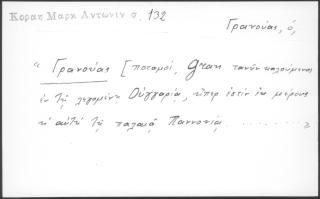 Κοραῆ Μαρκ Αντωνιν σ. 132
Γρανούας, ὁ,
“ Γρανούας [ποταμοί, Gran τανῦν καλούμενος
ἐν τῇ λεγομένῃ Οὑγγαρίᾳ, ἥπερ ἐστὶν ἐκ μέρους
ἡ αὐτὴ τῇ παλαιᾷ Παννονίᾳ . . . . . . . „